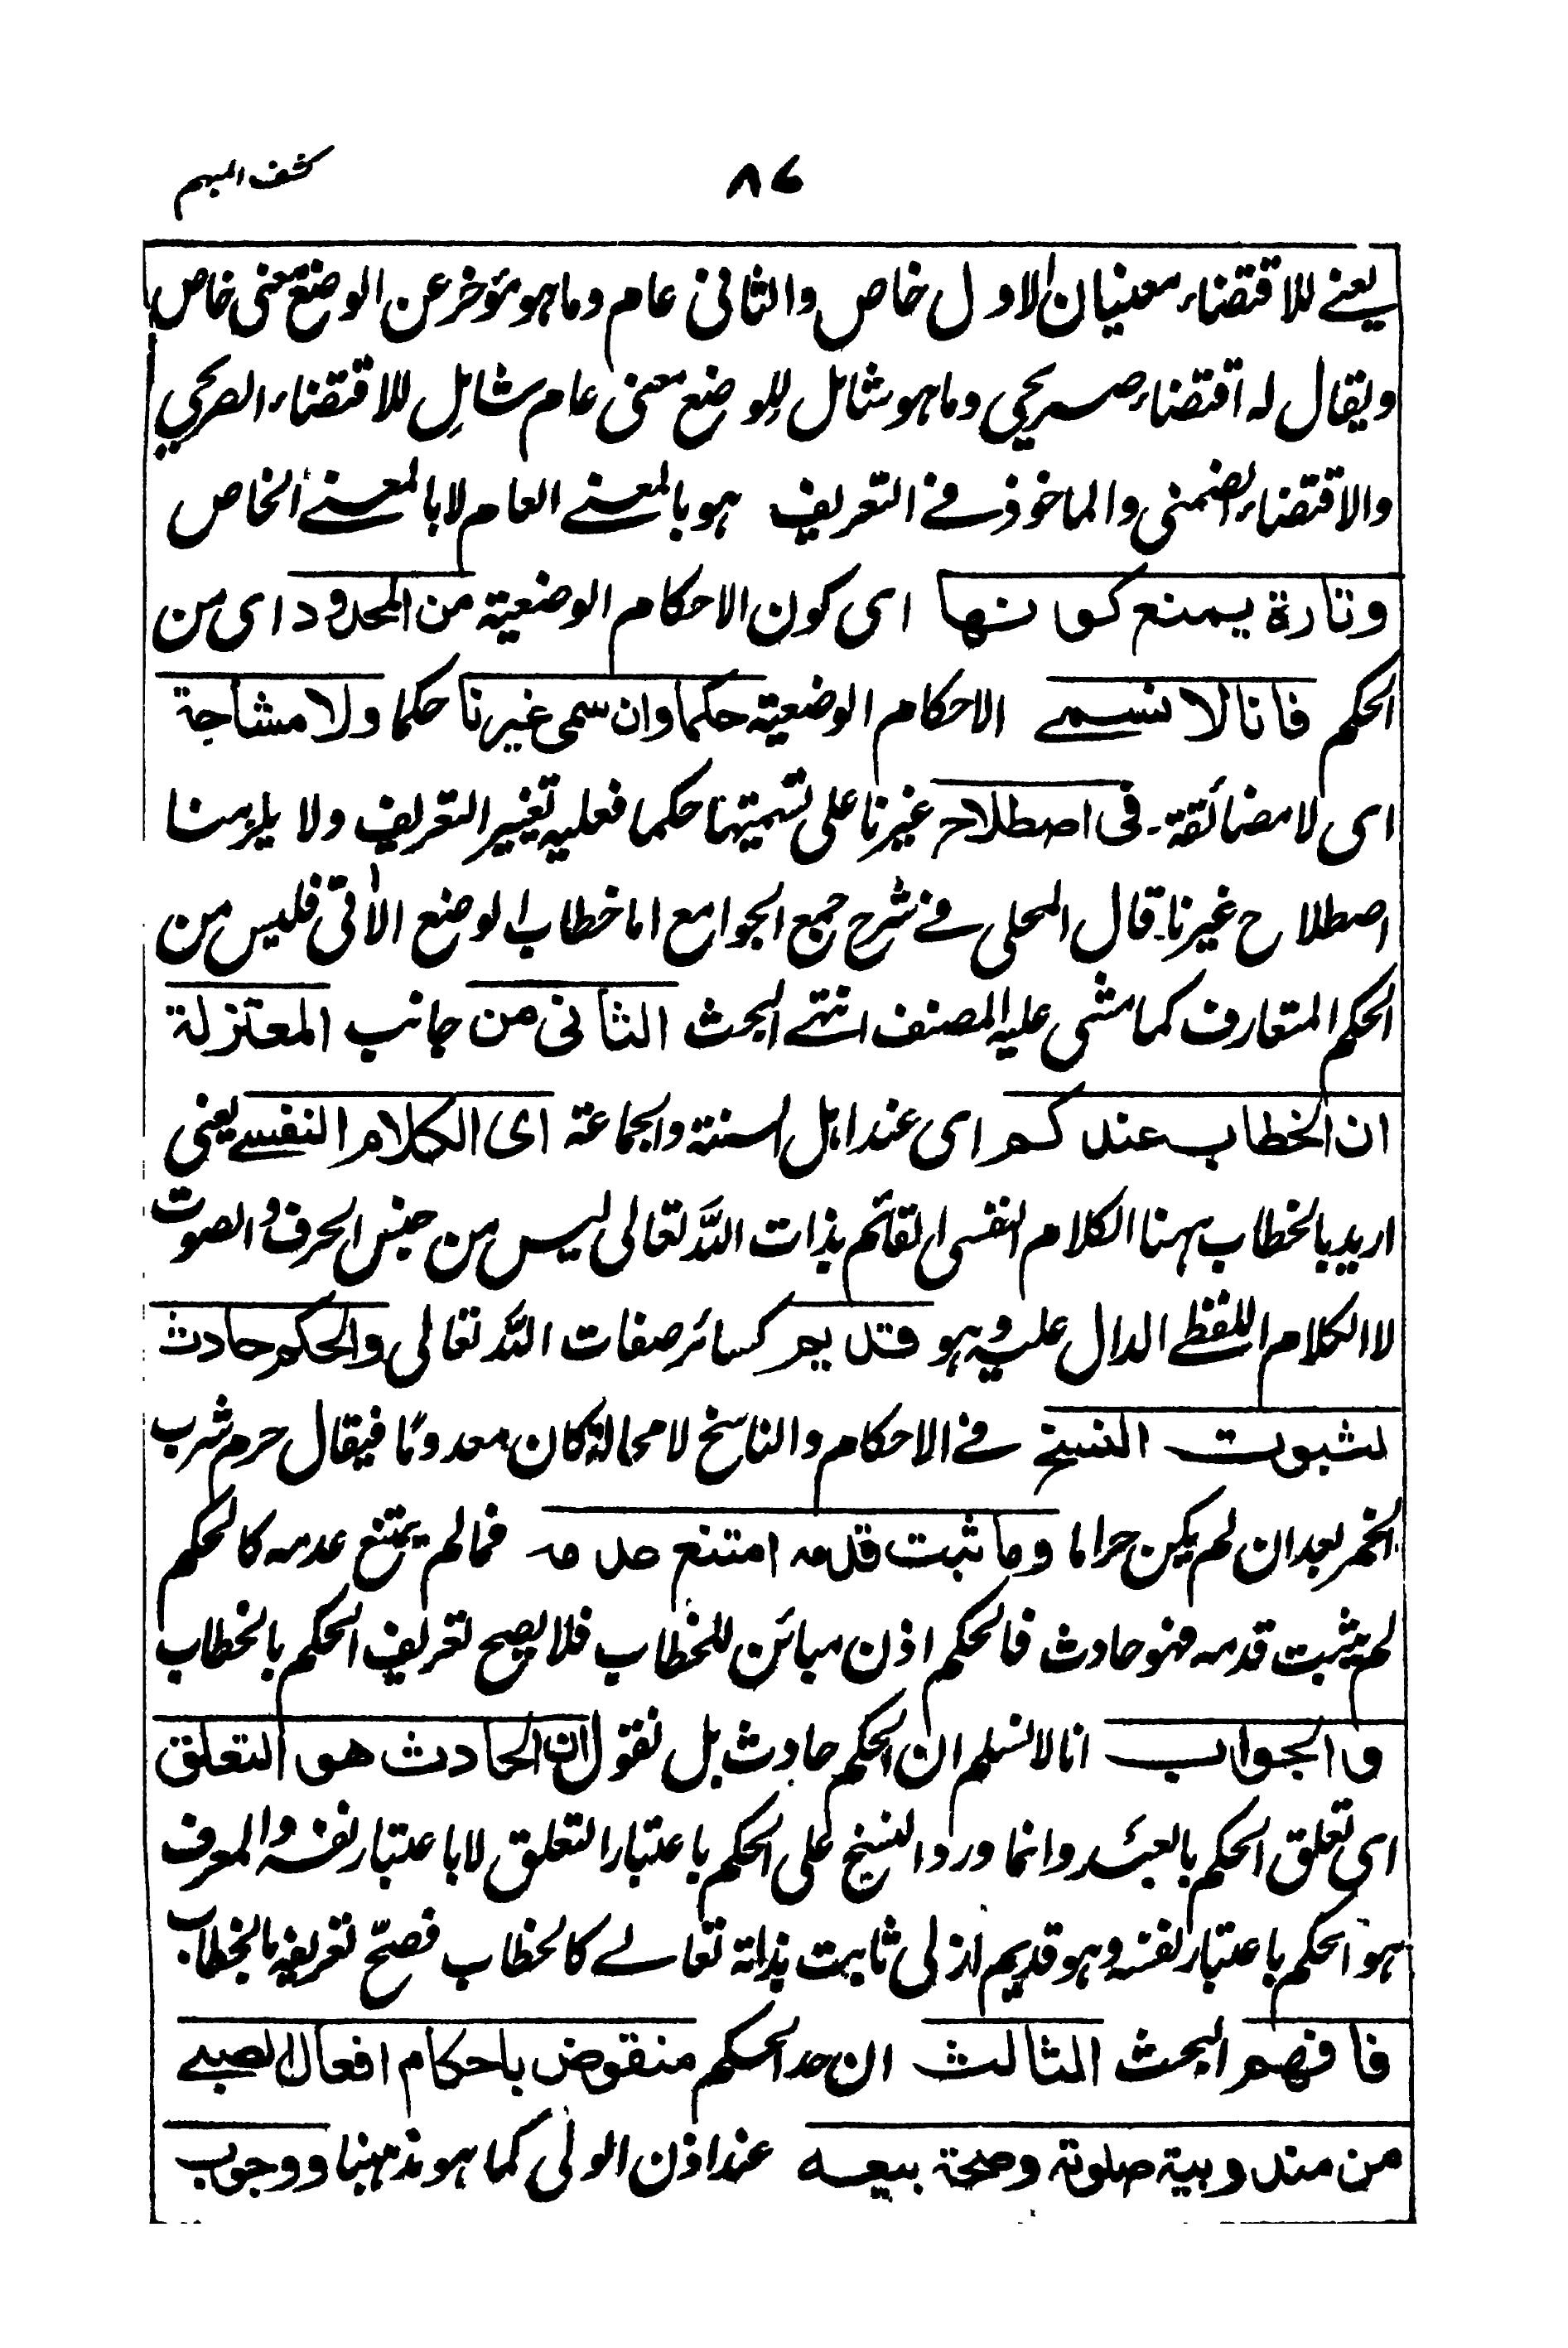 كشف المبهم
٨٤
يعنے للاقتضاء معنيان الاول خاص والثانی عام وما هو مؤخر عن الوضع معنى خاص
ويقال له اقتضاء صريحی وما هو شامل للوضع معنى عام شامل للاقتضاء الصريحی
والاقتضاء الضمنی والماخوذ فے التعريف هو بالمعنے العام لا بالمعنے الخاص
وتارة يمنع كونها ای كون الاحكام الوضعية من المحدود ای من
الحكم فانا لا نسمے الاحكام الوضعية حكما وان سمى غيرنا حكما ولا مشاحة
ای لا مضائقة۔ فی اصطلاح غيرنا على تسميتها حكما فعليه تغيير التعريف ولا يلزمنا
اصطلاح غيرنا۔ قال المحلی فے شرح جمع الجوامع اما خطاب الوضع الاٰتی فليس من
الحكم المتعارف كما مشى عليه المصنف انتہے البحث الثانی من جانب المعتزلة
ان الخطاب عندكم ای عند اهل السنة والجماعة ای الكلام النفسے يعنی
اريد بالخطاب ههنا الكلام النفسی القائم بذات الله تعالى ليس من جنس الحرف والصوت
لا الكلام اللفظے الدال عليه وهو قديم كسائر صفات الله تعالى والحكم حادث
لثبوت النسخ فے الاحكام والناسخ لا محالة كان معدومًا فيقال حرم شرب
الخمر بعد ان لم يكن حراما وما ثبت قدمه امتنع عدمه فما لم يمتنع عدمه كالحكم
لم يثبت قدمه فهو حادث فالحكم اذن مبائن للخطاب فلا يصح تعريف الحكم بالخطاب
والجواب انا لا نسلم ان الحكم حادث بل نقول ان الحادث هو التعلق
ای تعلق الحكم بالعبد وانما ورد النسخ على الحكم باعتبار التعلق لا باعتبار نفسه والمعرف
هو الحكم باعتبار نفسه وهو قديم ازلی ثابت بذاته تعالے كالخطاب فصحّ تعريفه بالخطاب
فافهم البحث الثالث ان حد الحكم منقوض باحكام افعال الصبے
من مندوبية صلوته وصحة بيعه عند اذن الولی كما هو مذهبنا ووجوب